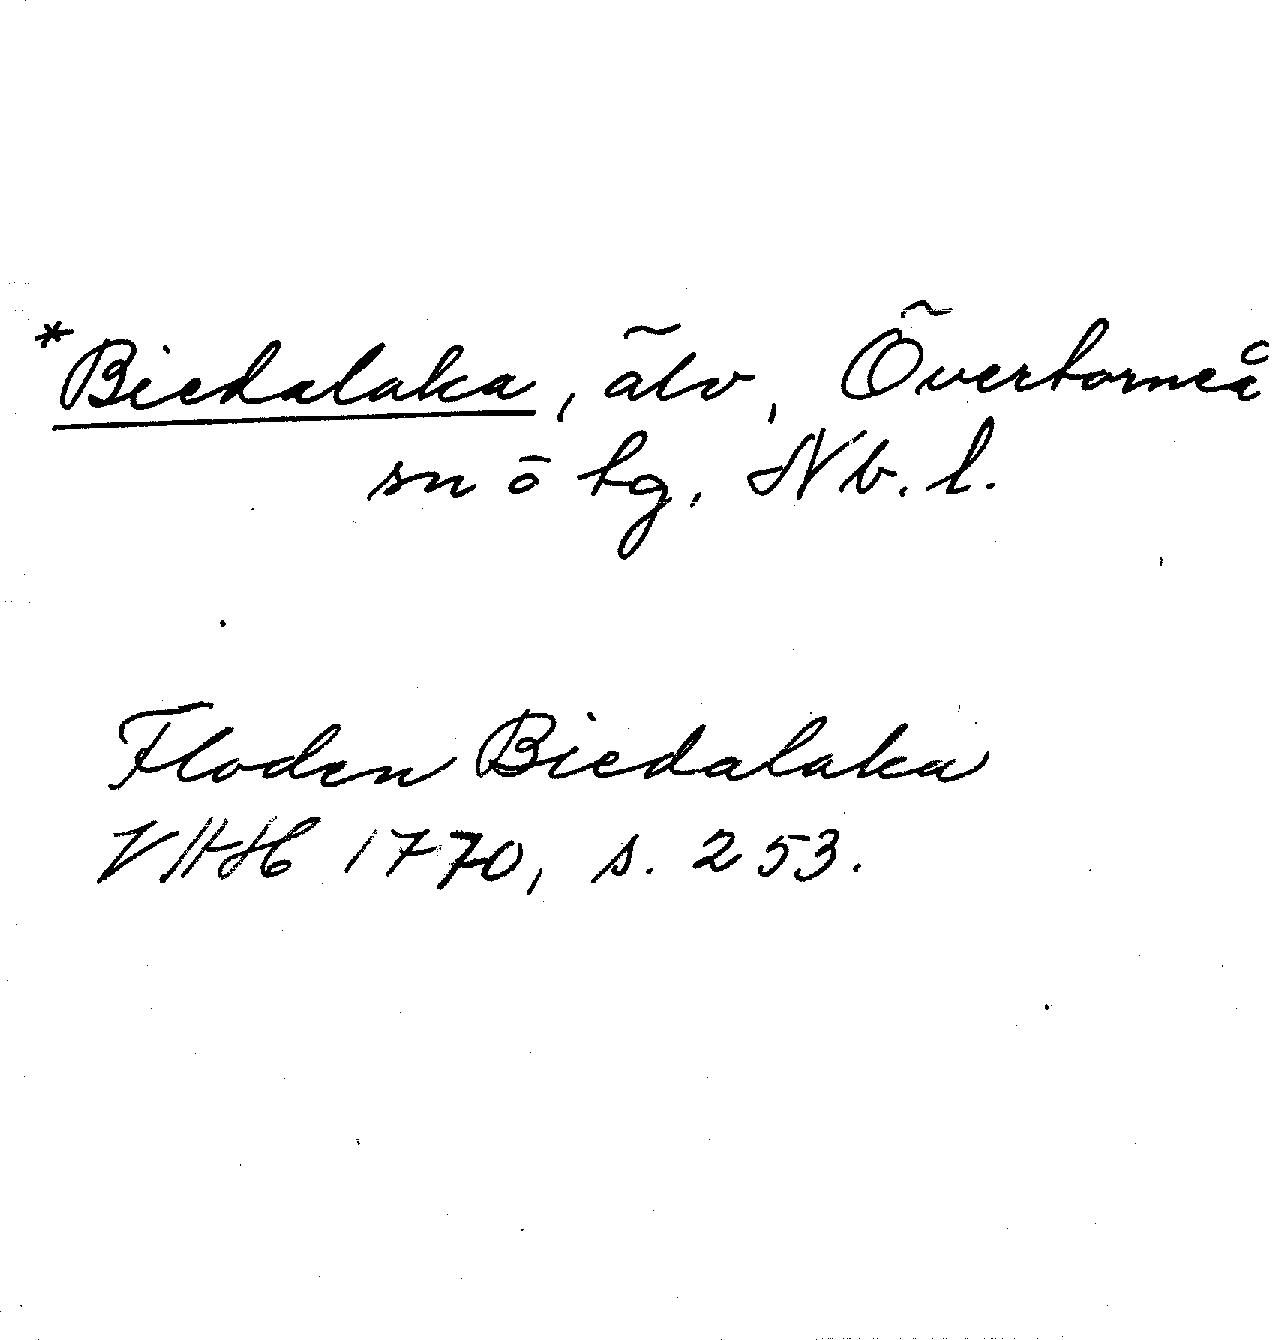 *Biedalaka, älv, Övertorneå
sn ö tg, Nb. l.
Floden Biedalaka
VHH 1770, s. 253.